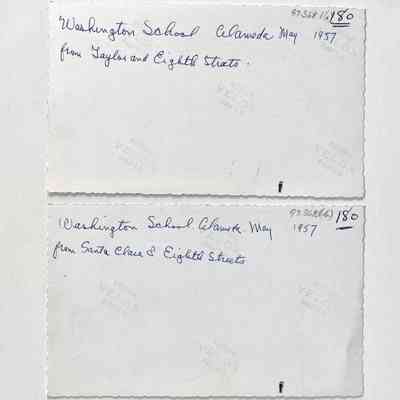 180
Washington School Alameda May 1957
from Taylor and Eighth Streets.
180
Washington School Alameda May 1957
from Santa Clara & Eighth Streets